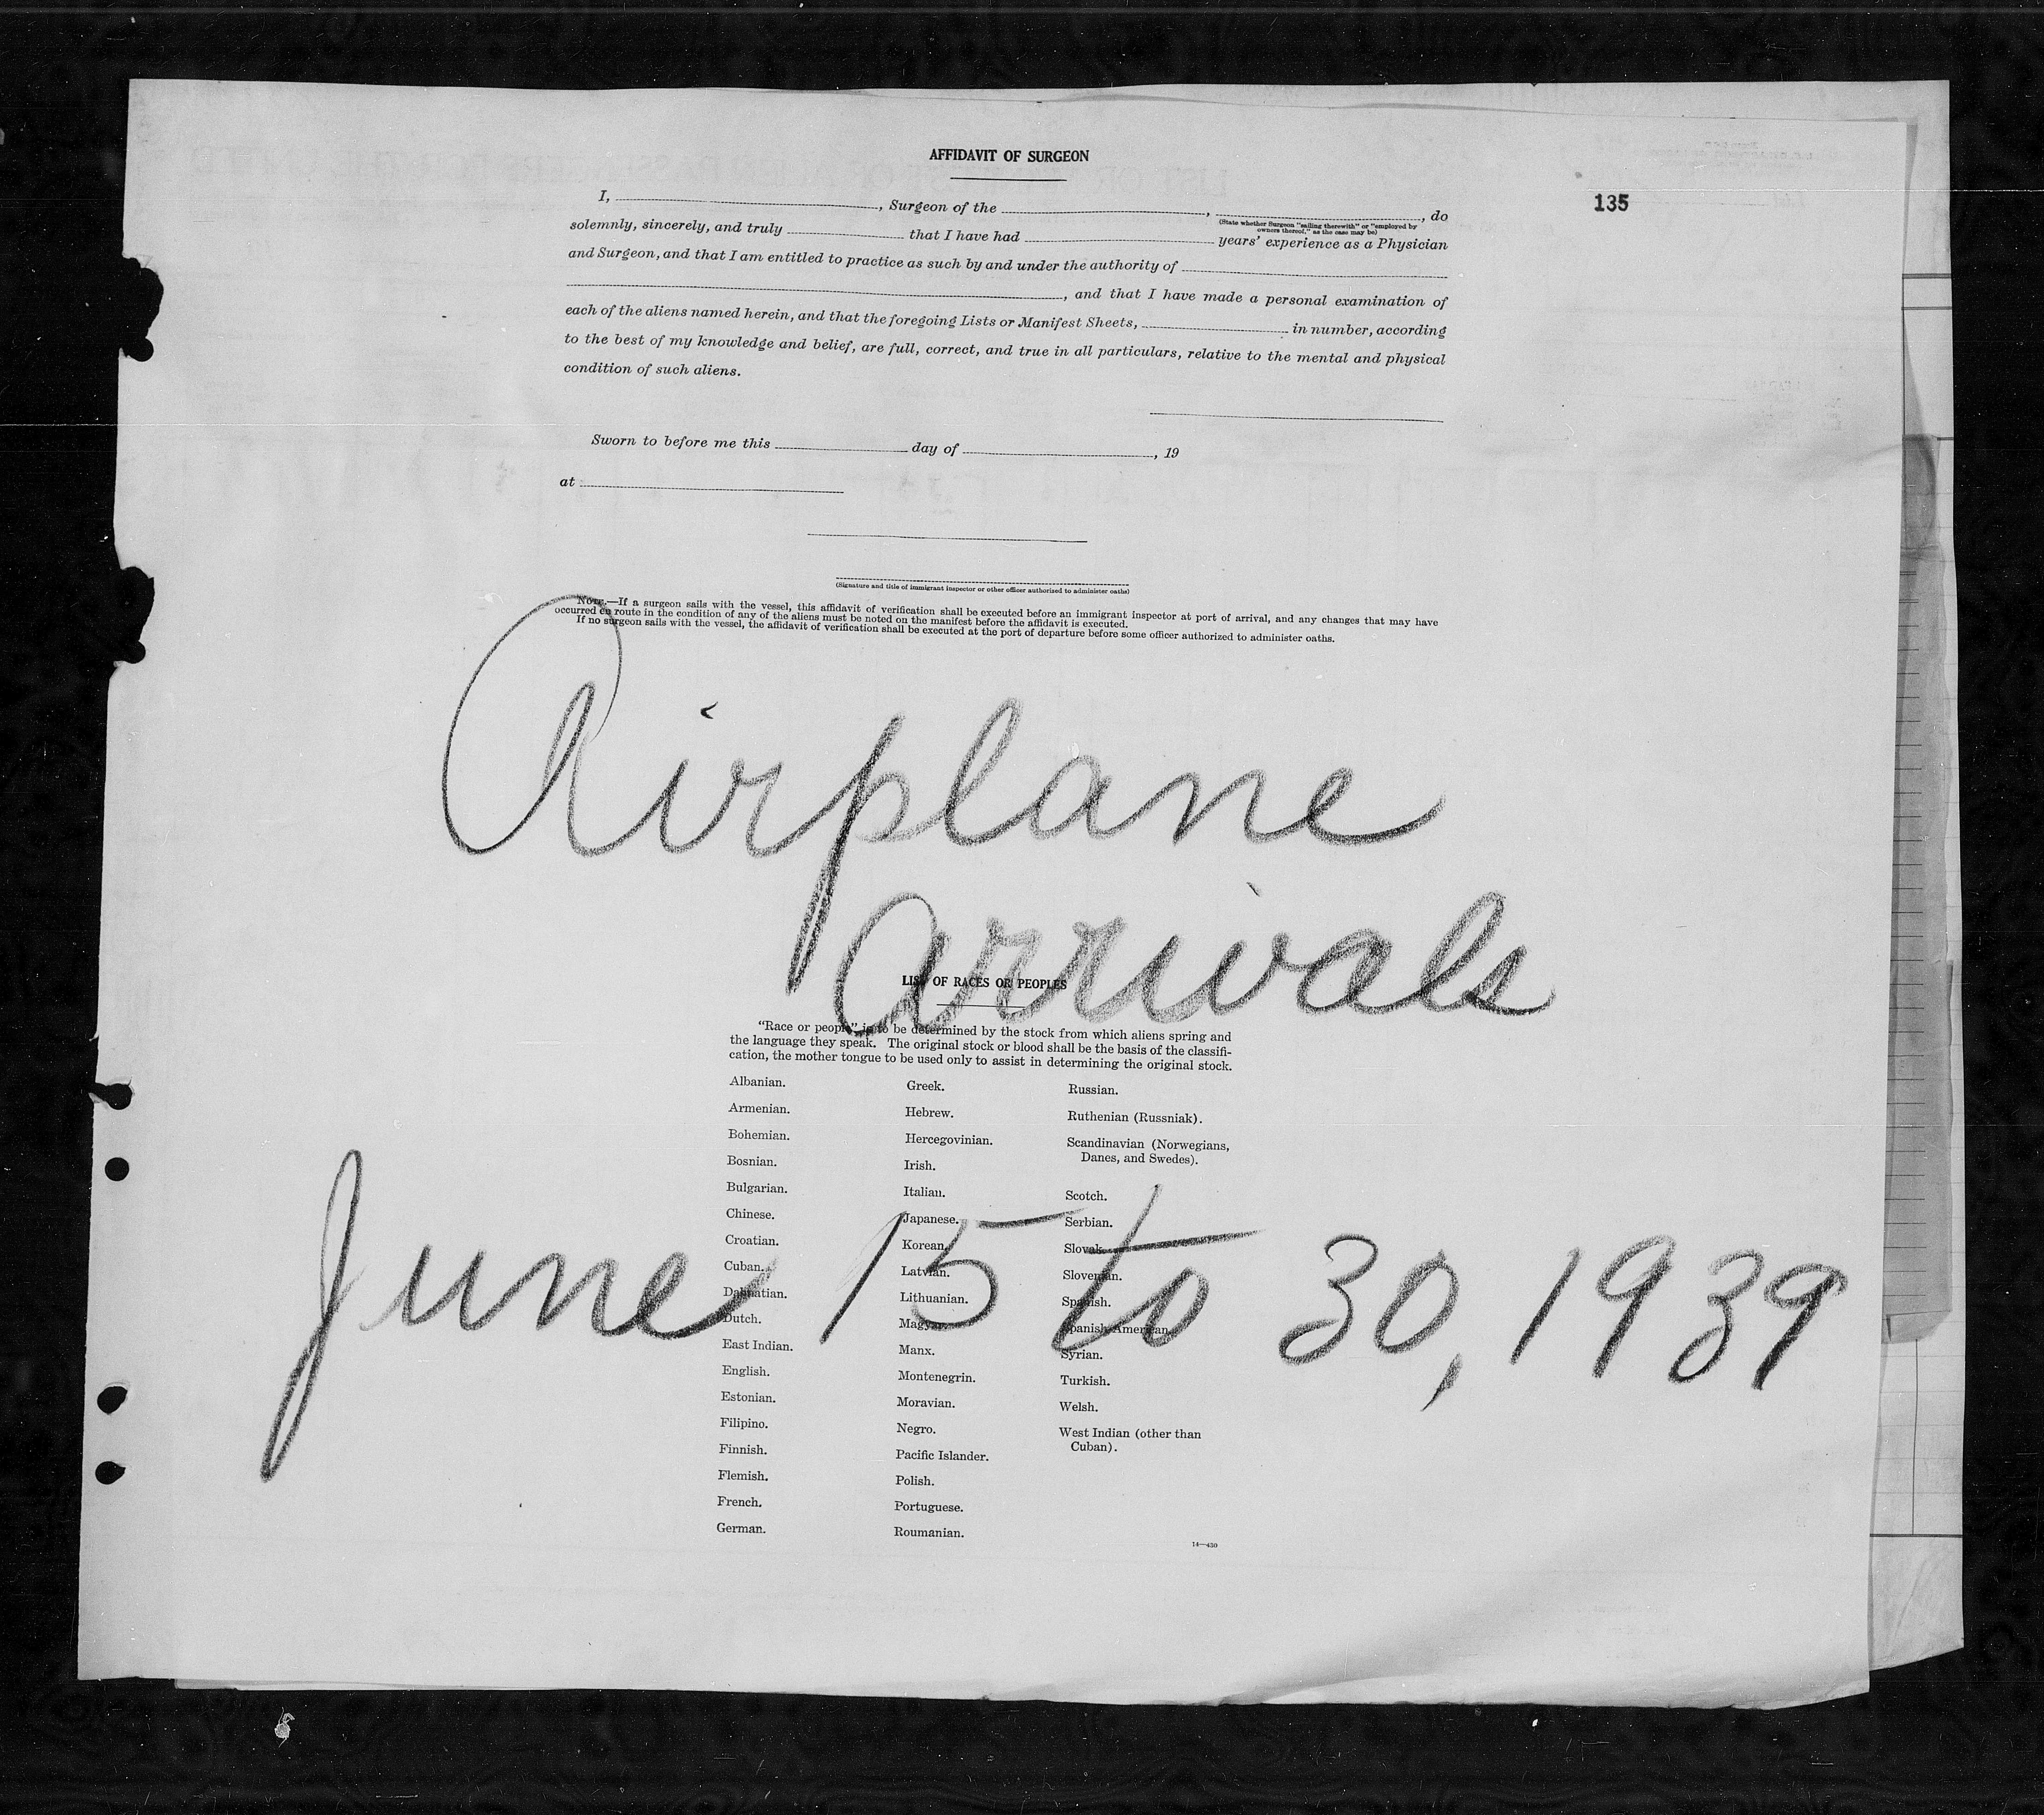 AFFIDAVIT OF SURGEON
135
I, , Surgeon of the , , do
(State whether Surgeon "sailing therewith" or "employed by
owners thereof," as the case may be)
solemnly, sincerely, and truly that I have had years' experience as a Physician
and Surgeon, and that I am entitled to practice as such by and under the authority of
, and that I have made a personal examination of
each of the aliens named herein, and that the foregoing Lists or Manifest Sheets, in number, according
to the best of my knowledge and belief, are full, correct, and true in all particulars, relative to the mental and physical
condition of such aliens.
Sworn to before me this day of , 19
at
(Signature and title of immigrant inspector or other officer authorized to administer oaths)
NOTE.—If a surgeon sails with the vessel, this affidavit of verification shall be executed before an immigrant inspector at port of arrival, and any changes that may have
occurred en route in the condition of any of the aliens must be noted on the manifest before the affidavit is executed.
If no surgeon sails with the vessel, the affidavit of verification shall be executed at the port of departure before some officer authorized to administer oaths.
Airplane
arrivals
LIST OF RACES OR PEOPLES
"Race or people" is to be determined by the stock from which aliens spring and
the language they speak. The original stock or blood shall be the basis of the classifi-
cation, the mother tongue to be used only to assist in determining the original stock.
Albanian.
Armenian.
Bohemian.
Bosnian.
Bulgarian.
Chinese.
Croatian.
Cuban.
Dalmatian.
Dutch.
East Indian.
English.
Estonian.
Filipino.
Finnish.
Flemish.
French.
German.
Greek.
Hebrew.
Hercegovinian.
Irish.
Italian.
Japanese.
Korean.
Latvian.
Lithuanian.
Magyar.
Manx.
Montenegrin.
Moravian.
Negro.
Pacific Islander.
Polish.
Portuguese.
Roumanian.
Russian.
Ruthenian (Russniak).
Scandinavian (Norwegians,
Danes, and Swedes).
Scotch.
Serbian.
Slovak.
Slovenian.
Spanish.
Spanish American.
Syrian.
Turkish.
Welsh.
West Indian (other than
Cuban).
June 15 to 30, 1939
14—430